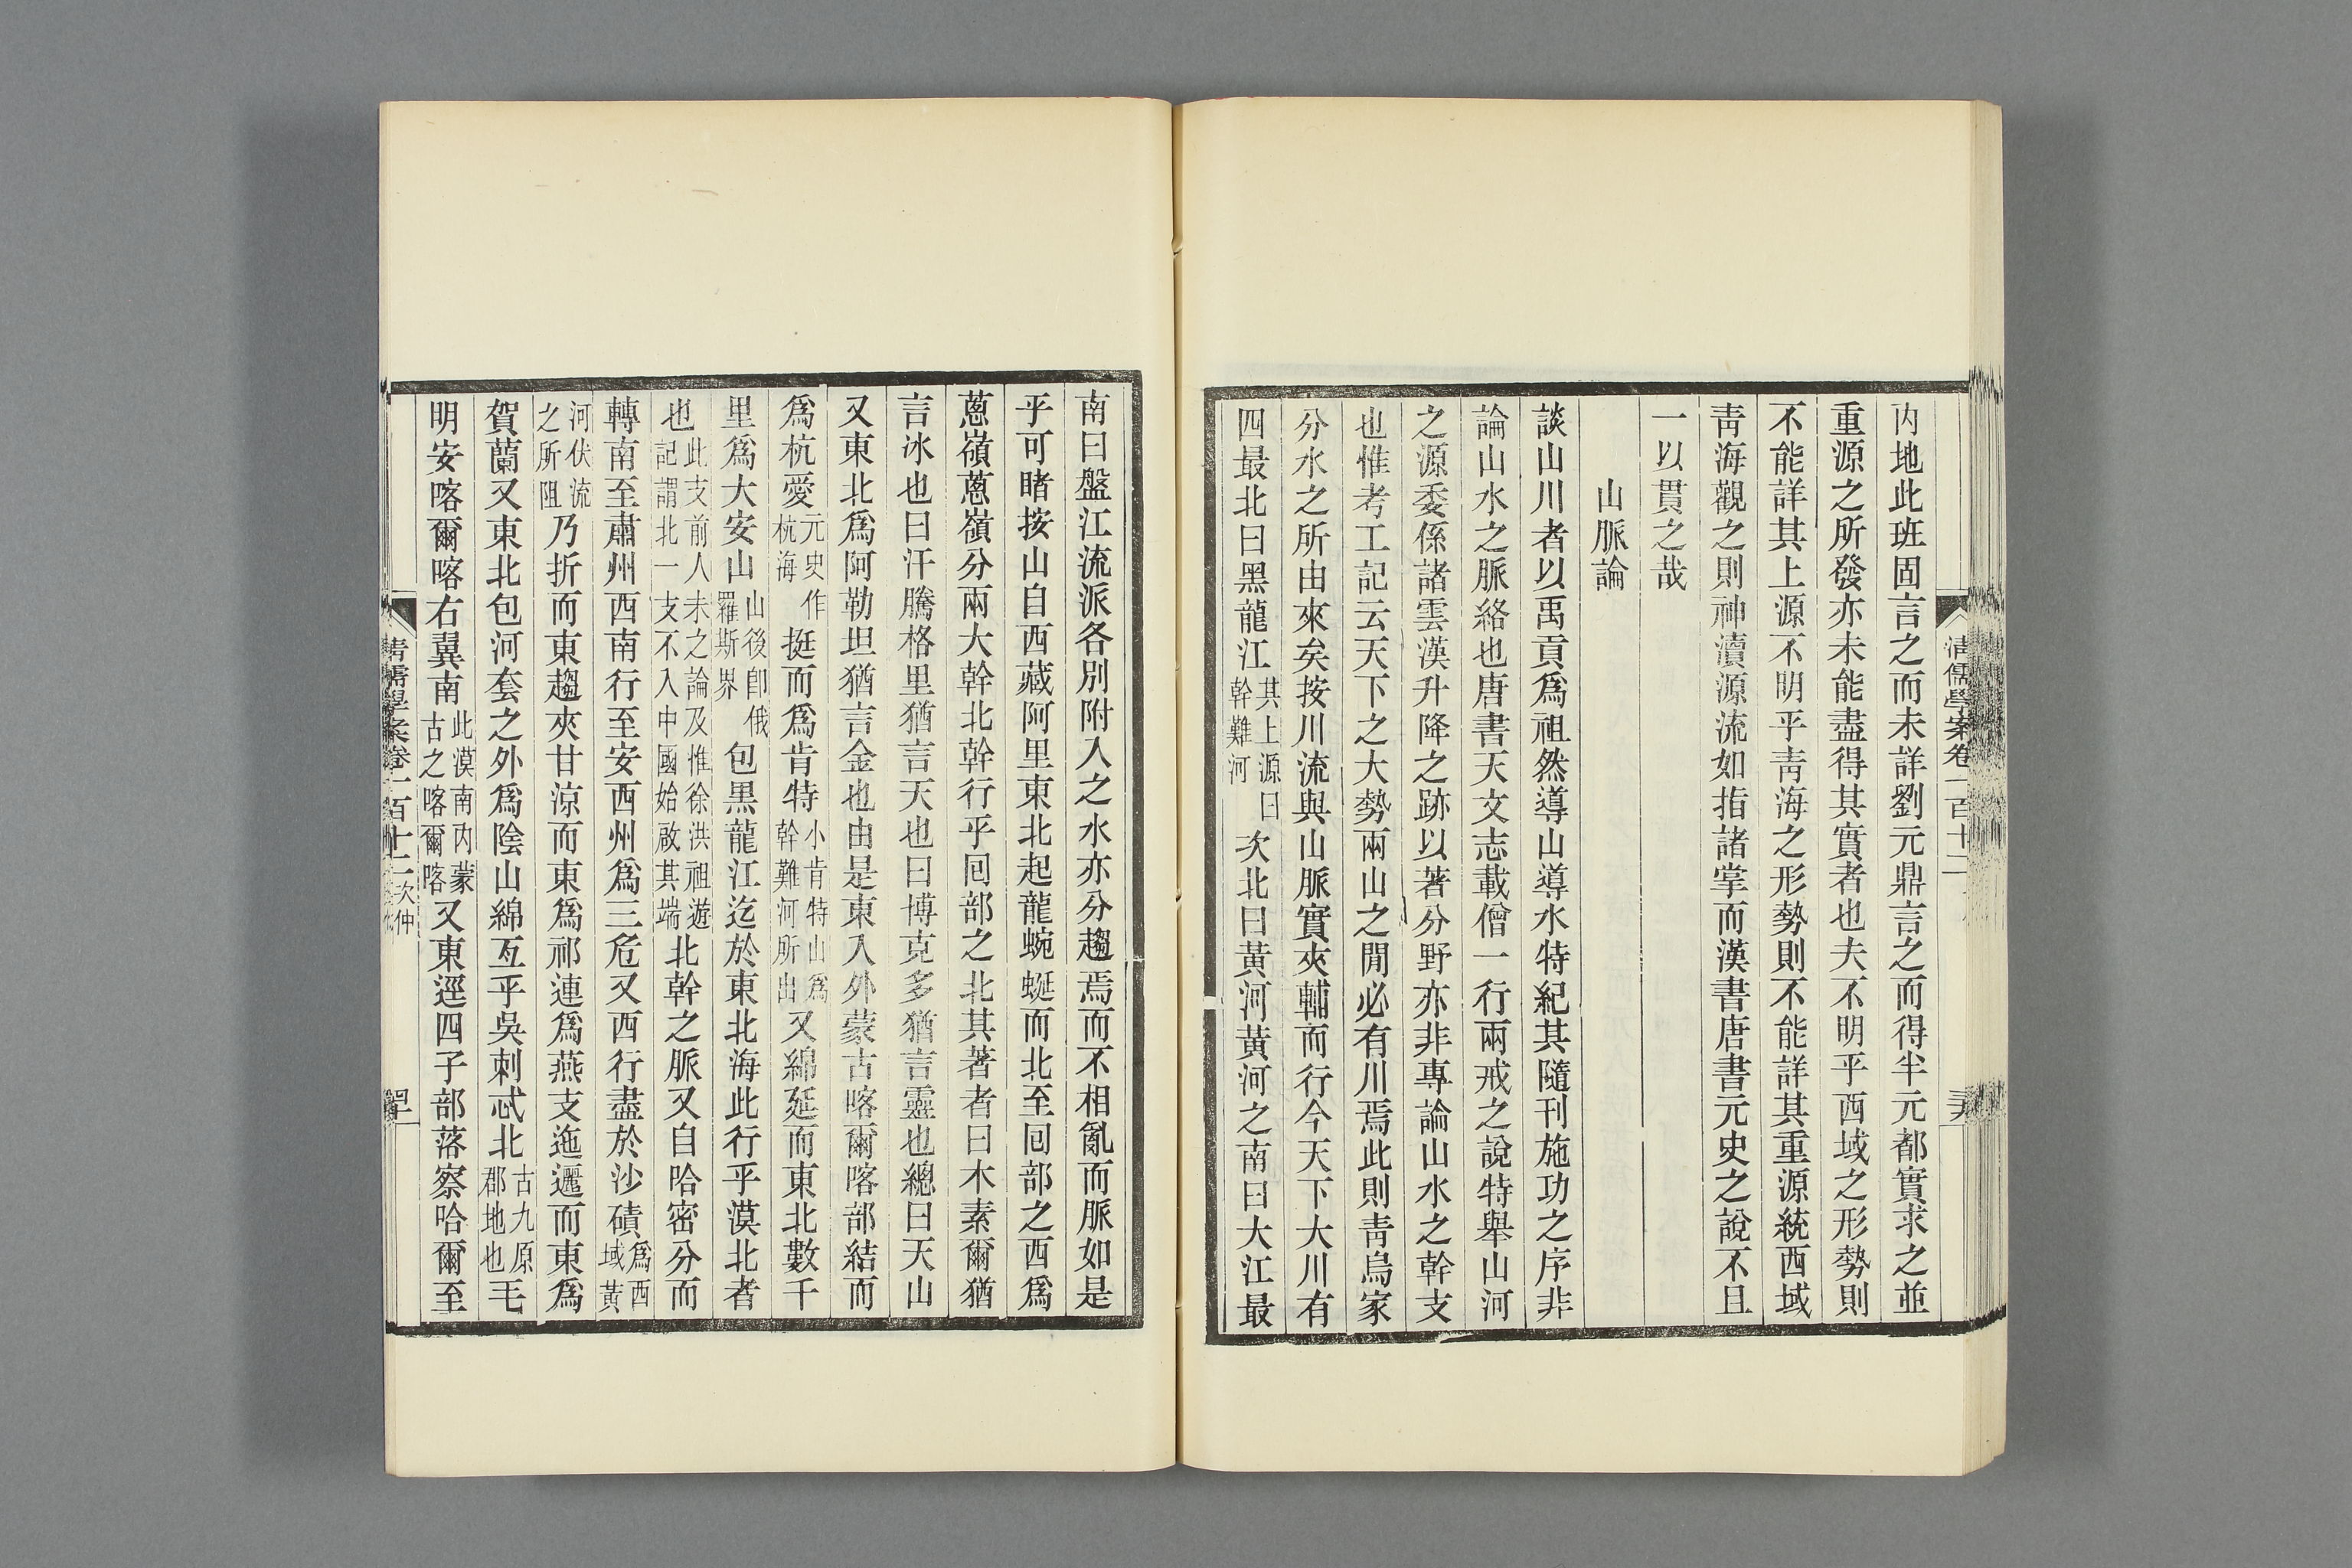 內地此班固言之而未詳劉元鼎言之而得半元都實求之並
重源之所發亦未能盡得其實者也夫不明乎西域之形勢則
不能詳其上源不明乎靑海之形勢則不能詳其重源統西域
靑海觀之則神瀆源流如指諸掌而漢書唐書元史之說不且
一以貫之哉
山脈論
談山川者以禹貢爲祖然導山導水特紀其隨刊施功之序非
論山水之脈絡也唐書天文志載僧一行兩戒之說特舉山河
之源委係諸雲漢升降之跡以著分野亦非專論山水之幹支
也惟考工記云天下之大勢兩山之閒必有川焉此則靑烏家
分水之所由來矣按川流與山脈實夾輔而行今天下大川有
四最北曰黑龍江其上源曰幹難河次北曰黃河黃河之南曰大江最
南曰盤江流派各別附入之水亦分趨焉而不相亂而脈如是
乎可睹按山自西藏阿里東北起龍蜿蜒而北至囘部之西爲
蔥嶺蔥嶺分兩大幹北幹行乎囘部之北其著者曰木素爾猶
言冰也曰汗騰格里猶言天也曰博克多猶言靈也總曰天山
又東北爲阿勒坦猶言金也由是東入外蒙古喀爾喀部結而
爲杭愛元史作杭海挺而爲肯特小肯特山爲幹難河所出又綿延而東北數千
里爲大安山山後卽俄羅斯界包黑龍江迄於東北海此行乎漠北者
也此支前人未之論及惟徐洪祖遊記謂北一支不入中國始啟其端北幹之脈又自哈密分而
轉南至肅州西南行至安西州爲三危又西行盡於沙磧爲西域黃
河伏流之所阻乃折而東趨夾甘涼而東爲祁連爲燕支迤邐而東爲
賀蘭又東北包河套之外爲陰山綿亙乎吳刺忒北古九原郡地也毛
明安喀爾喀右翼南此漠南內蒙古之喀爾喀又東逕四子部落察哈爾至
清儒學案卷一百十二
清儒學案卷一百十二 次仲